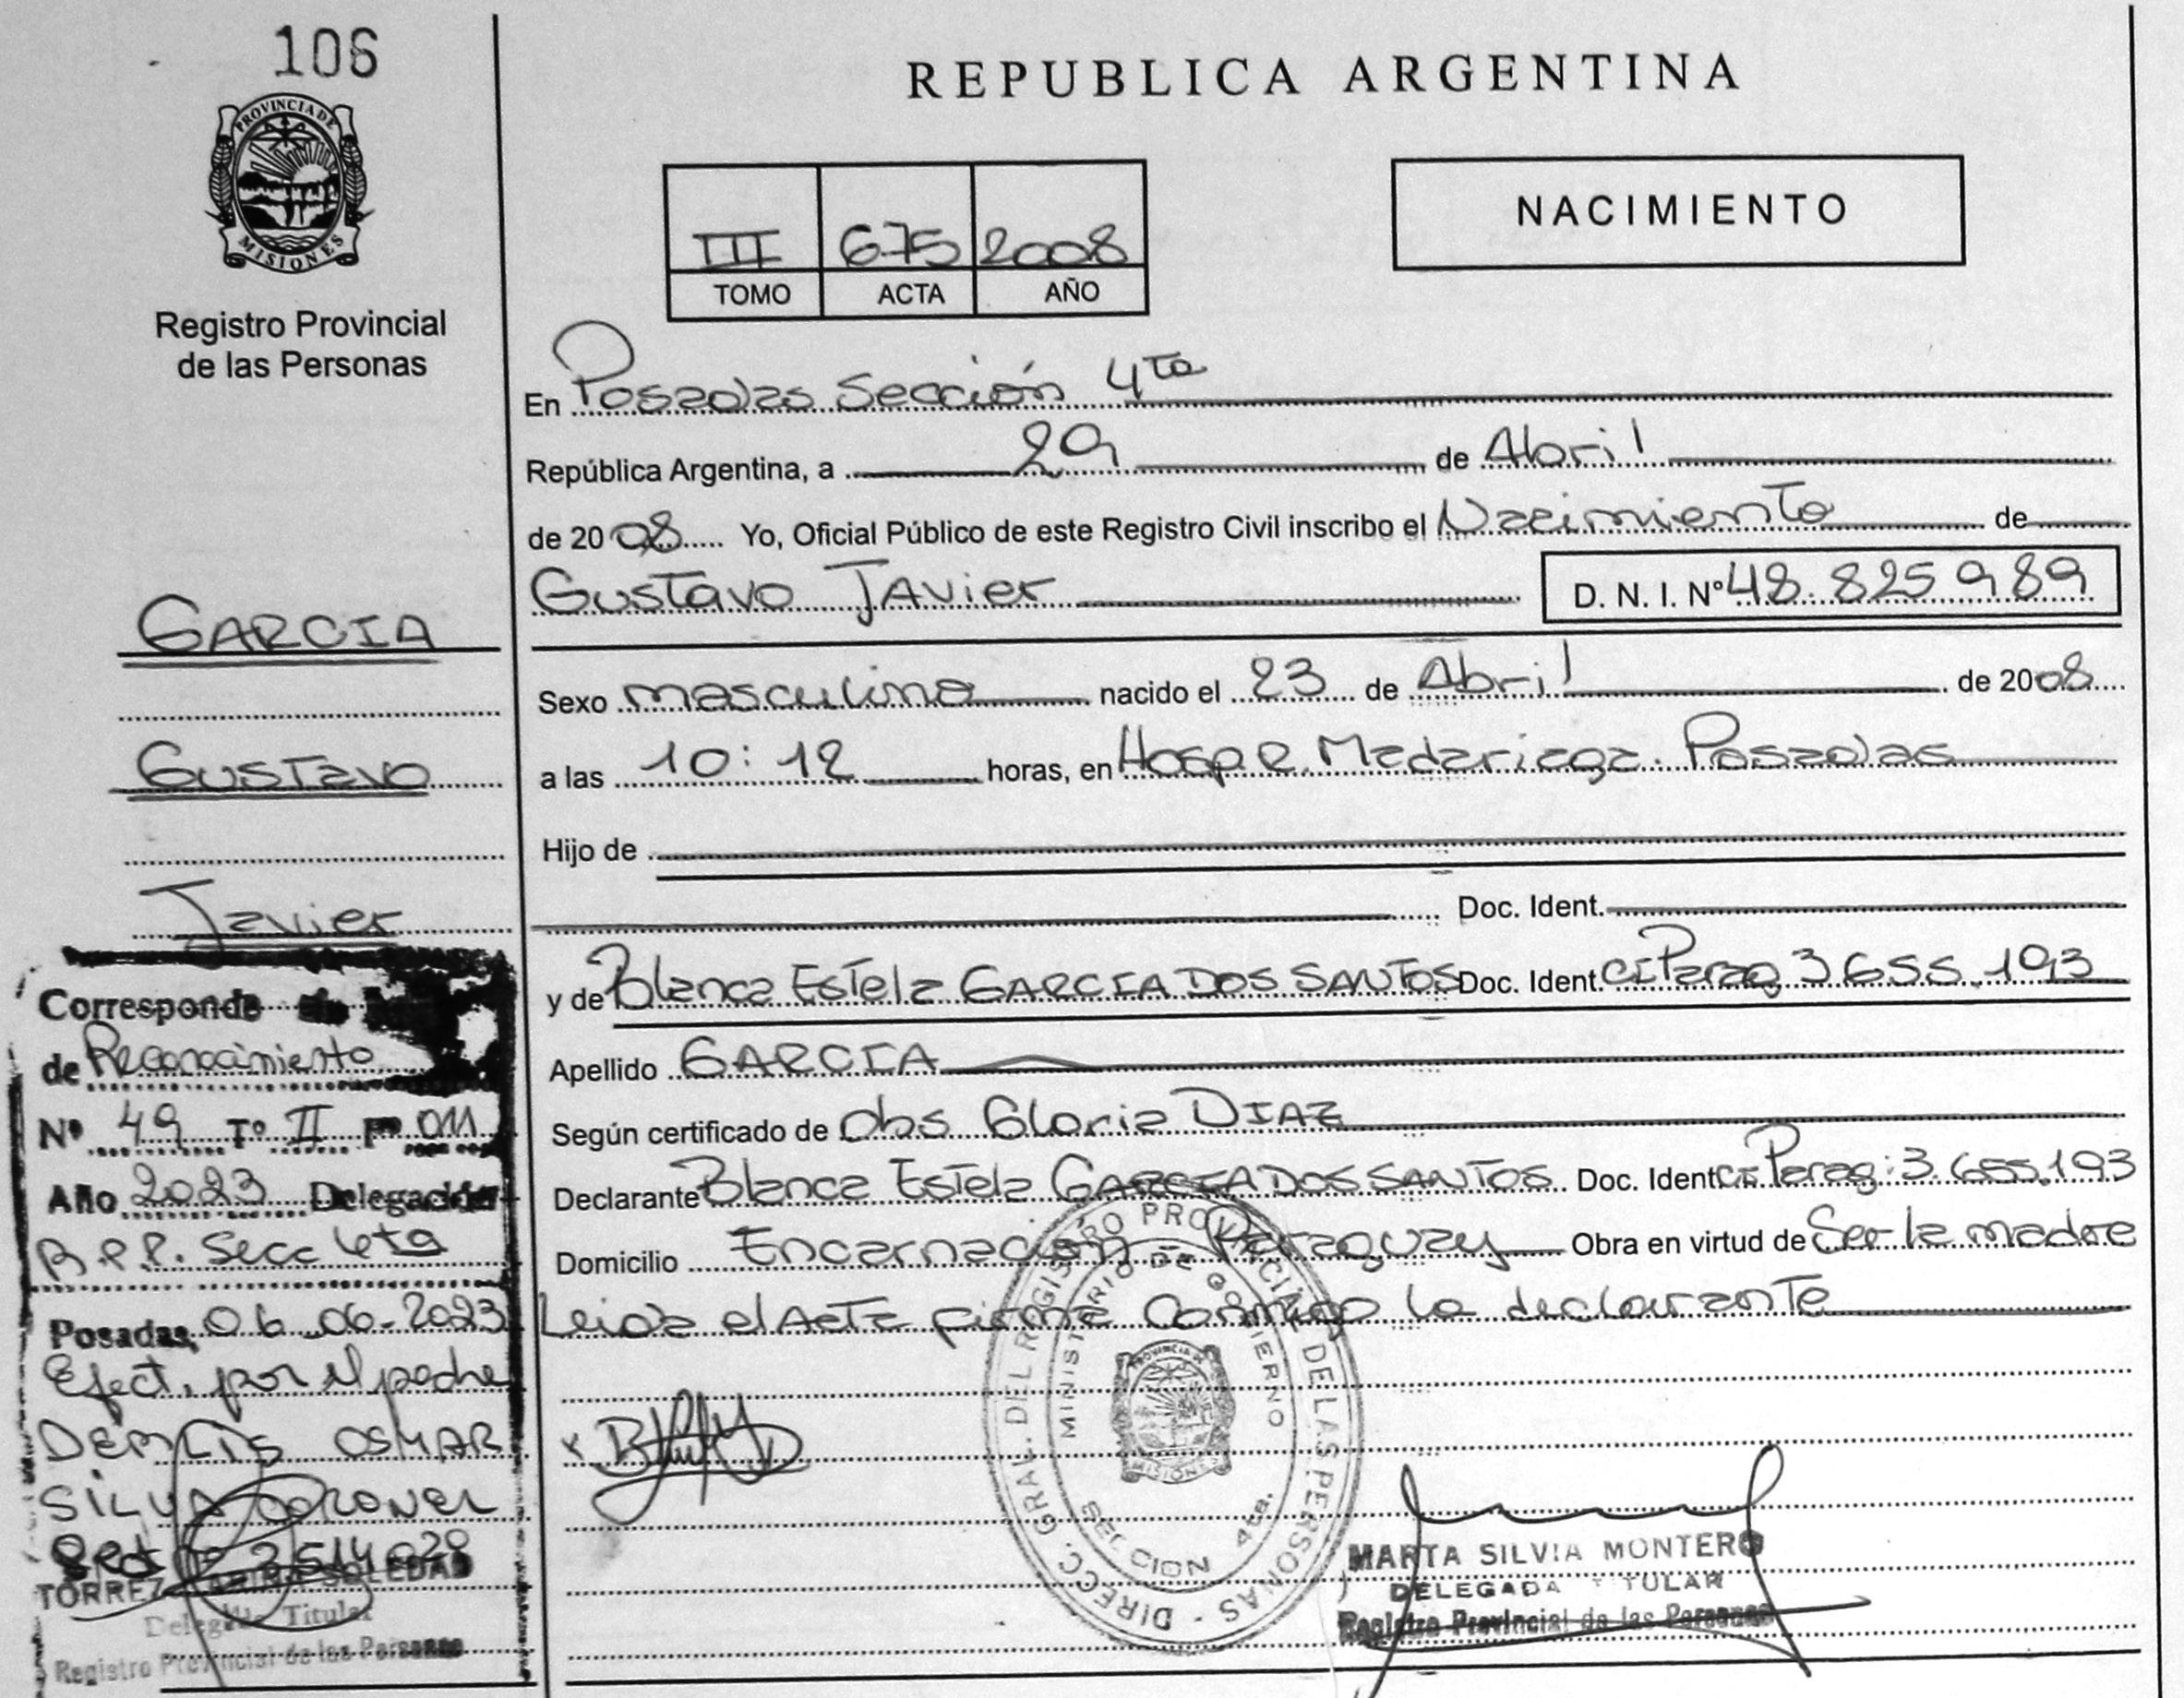 106
PROVINCIA DE
MISIONES
Registro Provincial
de las Personas
GARCIA
Gustavo
Javier
Corresponde
de Reconocimiento
Nº 49 Tº II Fº 011
Año 2023 Delegación
R.P.P. Secc 4ta
Posadas, 06-06-2023
Efect. por el padre
DEMLIS OSMAR
SILVA CORONEL
2514028
TORREZ KARINA SOLEDAD
Delegada Titular
Registro Provincial de las Personas
REPUBLICA ARGENTINA
III 675 2008
TOMO ACTA AÑO
NACIMIENTO
En Posadas Sección 4ta
República Argentina, a 29 de Abril
de 2008 Yo, Oficial Público de este Registro Civil inscribo el Nacimiento de
Gustavo JAvier D. N. I. Nº 48.825.989
Sexo masculino nacido el 23 de Abril de 2008
a las 10:12 horas, en Hosp R. Madariaga. Posadas
Hijo de
Doc. Ident.
y de Blanca Estela GARCIA DOS SANTOS Doc. Ident. CI Parag 3.655.193
Apellido GARCIA
Según certificado de Obs Gloria DIAZ
Declarante Blanca Estela GARCIA DOS SANTOS Doc. Ident CI Parag: 3.655.193
Domicilio Encarnación - Paraguay Obra en virtud de Ser la madre
Leida el Acta firma Conmigo la declarante
DIRECC. GRAL. DEL REGISTRO PROVINCIAL DE LAS PERSONAS -
MINISTERIO DE GOBIERNO
PROVINCIA DE
MISIONES
SECCION 4ta.
MARTA SILVIA MONTERO
DELEGADA TITULAR
Registro Provincial de las Personas